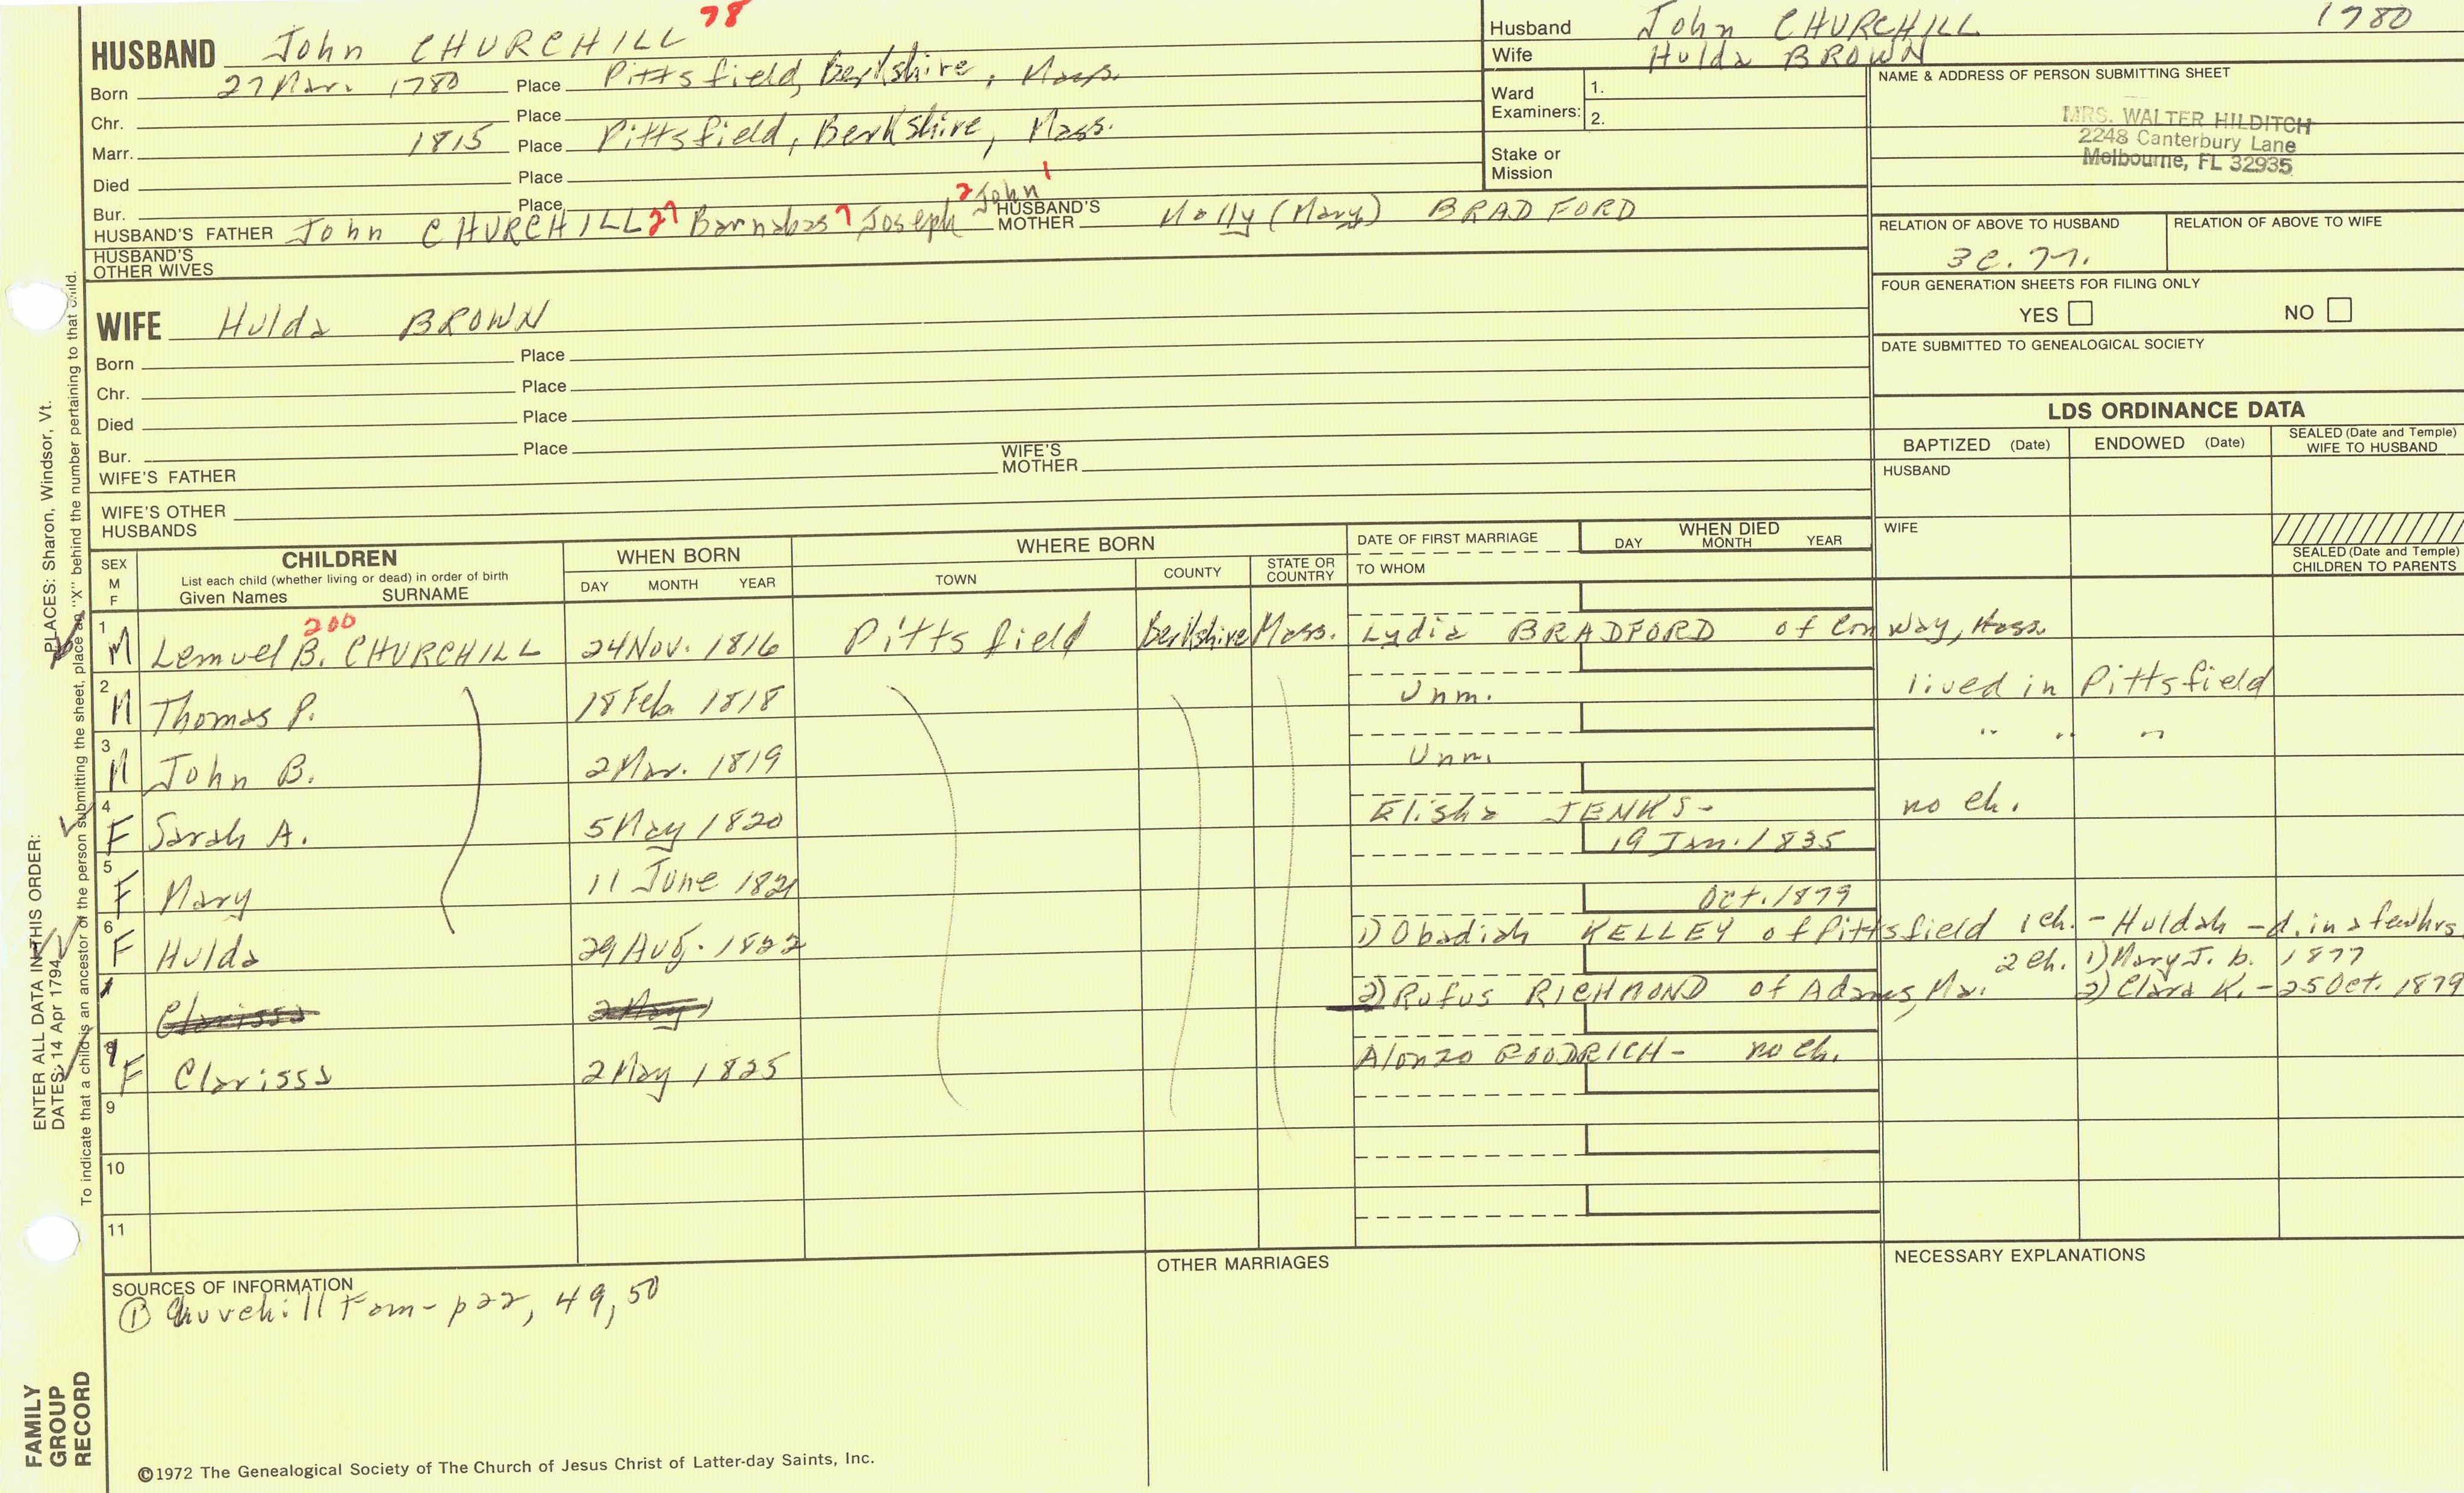 78
HUSBAND John CHURCHILL
Born 27 Mar. 1780 Place Pittsfield, Berkshire, Mass.
Chr. Place
Marr. 1815 Place Pittsfield, Berkshire, Mass.
Died Place
Bur. Place
HUSBAND'S FATHER John CHURCHILL 27 Barnabas 7 Joseph 2 John 1 HUSBAND'S MOTHER Molly (Mary) BRADFORD
HUSBAND'S OTHER WIVES
Husband John CHURCHILL 1780
Wife Hulda BROWN
Ward Examiners: 1.
2.
Stake or Mission
NAME & ADDRESS OF PERSON SUBMITTING SHEET
MRS. WALTER HILDITCH
2248 Canterbury Lane
Melbourne, FL 32935
RELATION OF ABOVE TO HUSBAND RELATION OF ABOVE TO WIFE
FOUR GENERATION SHEETS FOR FILING ONLY
YES NO
DATE SUBMITTED TO GENEALOGICAL SOCIETY
WIFE Hulda BROWN
Born Place
Chr. Place
Died Place
Bur. Place
WIFE'S FATHER WIFE'S MOTHER
WIFE'S OTHER HUSBANDS
LDS ORDINANCE DATA
BAPTIZED (Date) ENDOWED (Date) SEALED (Date and Temple) WIFE TO HUSBAND
HUSBAND
WIFE
SEALED (Date and Temple) CHILDREN TO PARENTS
SEX M F CHILDREN List each child (whether living or dead) in order of birth Given Names SURNAME WHEN BORN DAY MONTH YEAR WHERE BORN TOWN COUNTY STATE OR COUNTRY DATE OF FIRST MARRIAGE TO WHOM WHEN DIED DAY MONTH YEAR
200
1 M Lemuel B. CHURCHILL 24 Nov. 1816 Pittsfield Berkshire Mass. Lydia BRADFORD of Conway, Mass.
2 M Thomas P. 18 Feb. 1818 Unm. lived in Pittsfield
3 M John B. 2 Mar. 1819 Unm. " " "
4 F Sarah A. 5 May 1820 Elisha JENKS - no ch.
19 Jan. 1835
5 F Mary 11 June 1821
Oct. 1879
6 F Hulda 29 Aug. 1822 1) Obadiah KELLEY of Pittsfield 1 ch. - Huldah - d. in a few hrs.
2 ch. 1) Mary J. b. 1877
Clarissa 2 May 2) Rufus RICHMOND of Adams, Ma. 2) Clara K. - 25 Oct. 1879
8 7 F Clarissa 2 May 1825 Alonzo GOODRICH - no ch.
9
10
11
SOURCES OF INFORMATION
① Churchill Fam - p 22, 49, 50
OTHER MARRIAGES
NECESSARY EXPLANATIONS
©1972 The Genealogical Society of The Church of Jesus Christ of Latter-day Saints, Inc.
ENTER ALL DATA IN THIS ORDER:
DATES: 14 Apr 1794
PLACES: Sharon, Windsor, Vt.
To indicate that a child is an ancestor of the person submitting the sheet, place an "X" behind the number pertaining to that child.
FAMILY GROUP RECORD